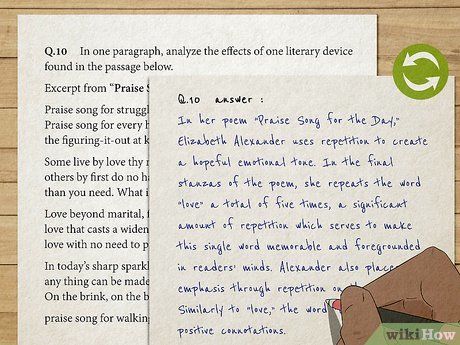 Q.10 In one paragraph, analyze the effects of one literary device
found in the passage below.
Excerpt from "Praise S
Praise song for struggl
Praise song for every h
the figuring-it-out at k
Some live by love thy n
others by first do no ha
than you need. What i
Love beyond marital, f
love that casts a widen
love with no need to p
In today's sharp sparkl
any thing can be made
On the brink, on the b
praise song for walking
Q.10 answer :
In her poem "Praise Song for the Day,"
Elizabeth Alexander uses repetition to create
a hopeful emotional tone. In the final
stanzas of the poem, she repeats the word
"love" a total of five times, a significant
amount of repetition which serves to make
this single word memorable and foregrounded
in readers' minds. Alexander also place
emphasis through repetition on
Similarly to "love," the word
positive connotations.
wikiHow